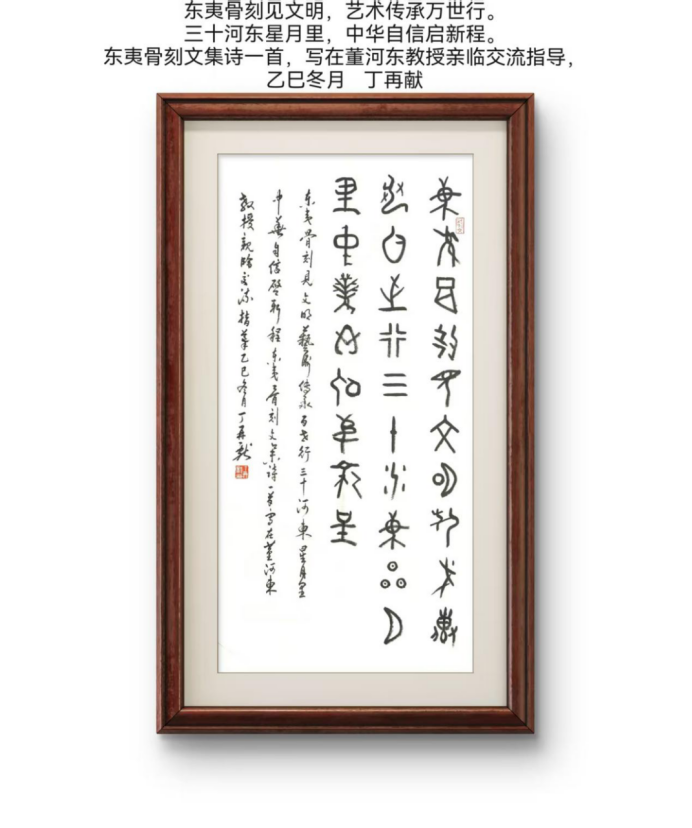 东夷骨刻见文明，艺术传承万世行。
三十河东星月里，中华自信启新程。
东夷骨刻文集诗一首，写在董河东教授亲临交流指导，
乙巳冬月 丁再献
東夷骨刻見文明藝術傳承万世行
三十河東星月里中華自信啓新程
东夷骨刻见文明藝術传承万世行三十河東星月里
中華自信啓新程东夷骨刻文集诗一首写在董河東
教授亲临交流指导乙巳冬月丁再献